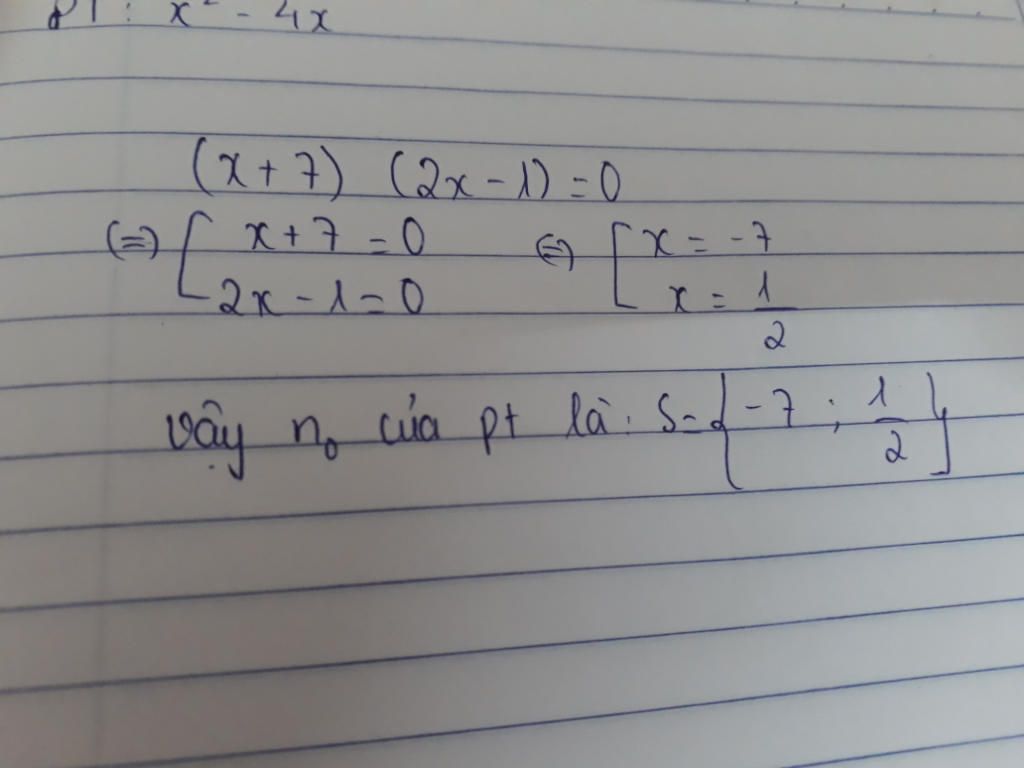 PT : x² - 4x
(x + 7) (2x - 1) = 0
(=) [ x + 7 = 0 (=) [ x = -7
2x - 1 = 0 x = 1/2
vậy n₀ của pt là : S = { -7 ; 1/2 }